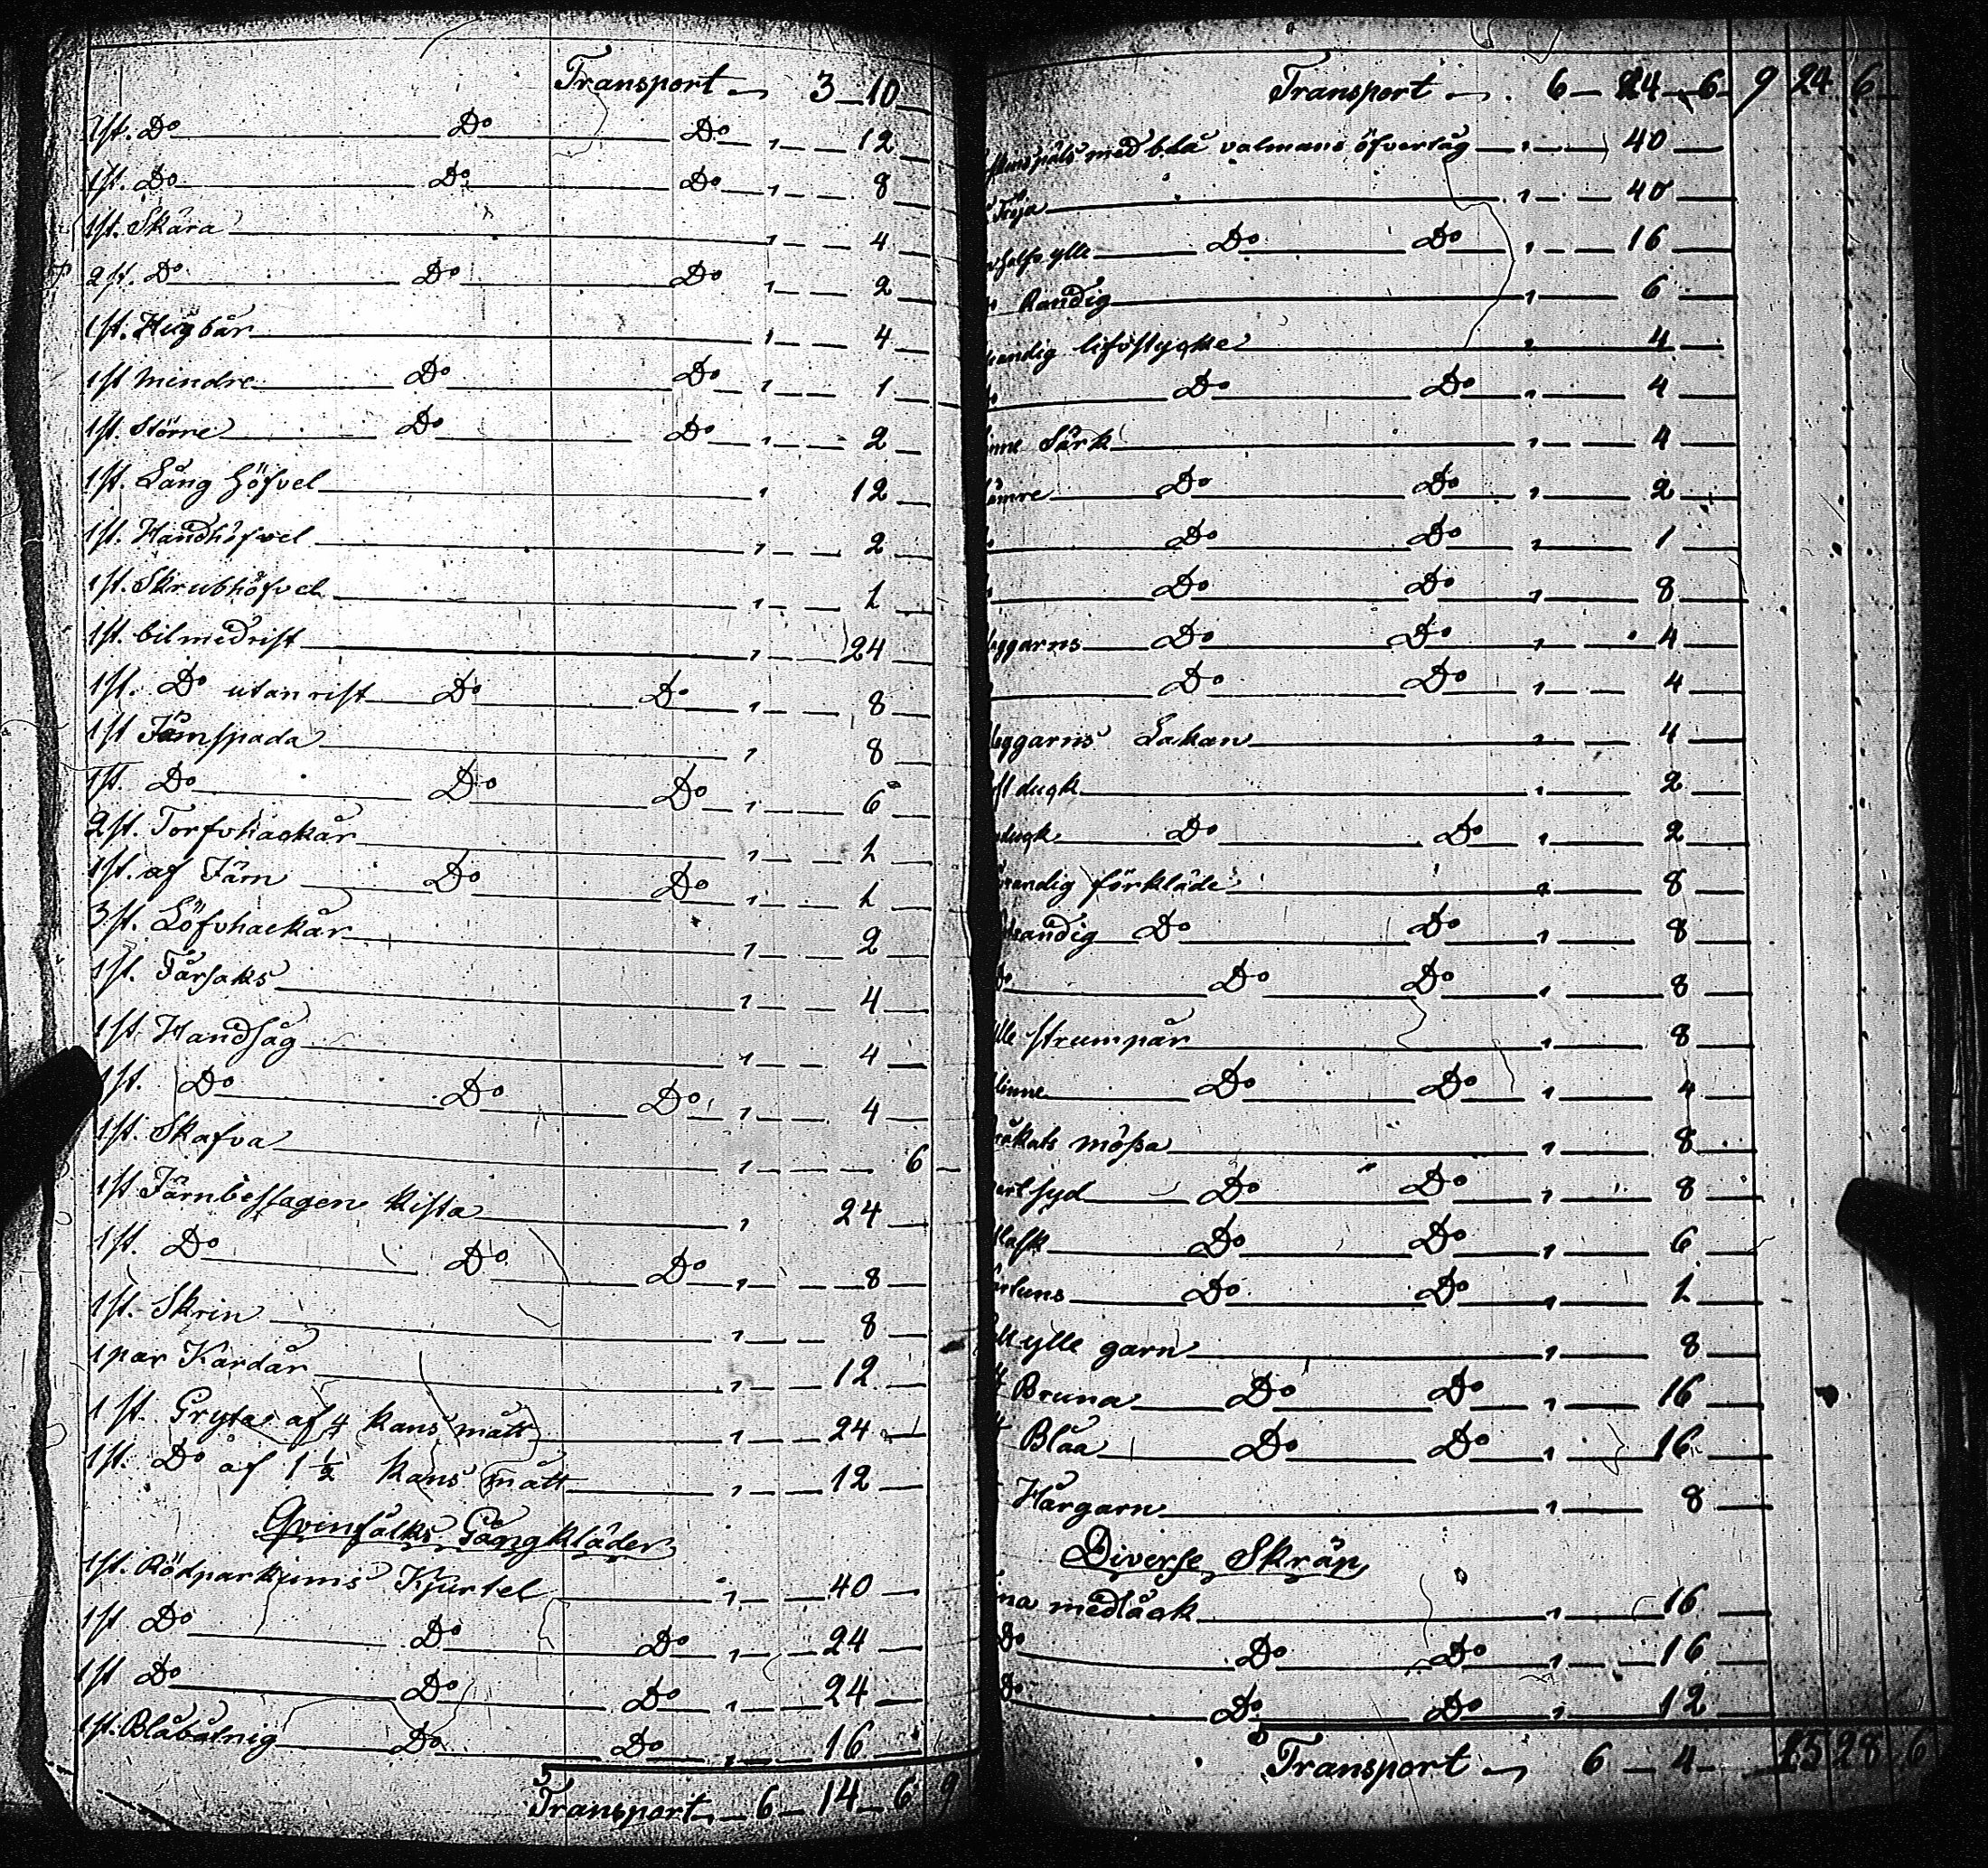 Transport 3 10
1st. Do Do Do " 12
1st. Do Do Do " 8
1st. Skära " 4
2st. Do Do Do " 2
1st. Hugbår " 4
1st Mindre Do Do " 1
1st. Större Do Do " 2
1st. Lång höfvel " 12
1st. Handhöfvel " 2
1st. Skrubhöfvel " 1
1st. bil med rist " 24
1st. Do utan rist Do Do " 8
1st Järnspada " 8
1st. Do Do Do " 6
2st. Torfvhackår " 1
1st. af Järn Do Do " 1
3st. Löfvhackår " 2
1st. Fårsaks " 4
1st Handsåg " 4
1st. Do Do Do " 4
1st. Skafva " 6
1st Järnbeslagen Kista " 24
1st. Do Do Do " 8
1st. Skrin " 8
1 par Kardår " 12
1 st. Gryta af 4 kans mått " 24
1st. Do af 1 1/2 kans mått " 12
Qvinfålks Gångkläder
1st. Rödparkums Kjurtel " 40
1st Do Do Do " 24
1st Do Do Do " 24
1st. Blåbålnig Do Do " 16
Transport 6 14 6 9
Transport 6 24 6 9 24 6
med blå valmans öfverlåg " 40
Tröja " 40
halfv ylle Do Do " 16
Randig " 6
randig lifstycke " 4
Do Do " 4
Särk " 4
Do Do " 2
Do Do " 1
Do Do " 8
äggarns Do Do " 4
Do Do " 4
äggarns Lakan " 4
duqk " 2
duqk Do Do " 2
randig förkläde " 8
randig Do Do " 8
Do Do Do " 8
strumpår " 8
linne Do Do " 4
mössa " 8
Do Do " 8
Do Do " 6
Do Do " 1
ylle garn " 8
Bruna Do Do " 16
Blåa Do Do " 16
Hårgarn " 8
Diverse Skräp
med låck " 16
Do Do Do " 16
Do Do Do " 12
Transport 6 4 15 28 6